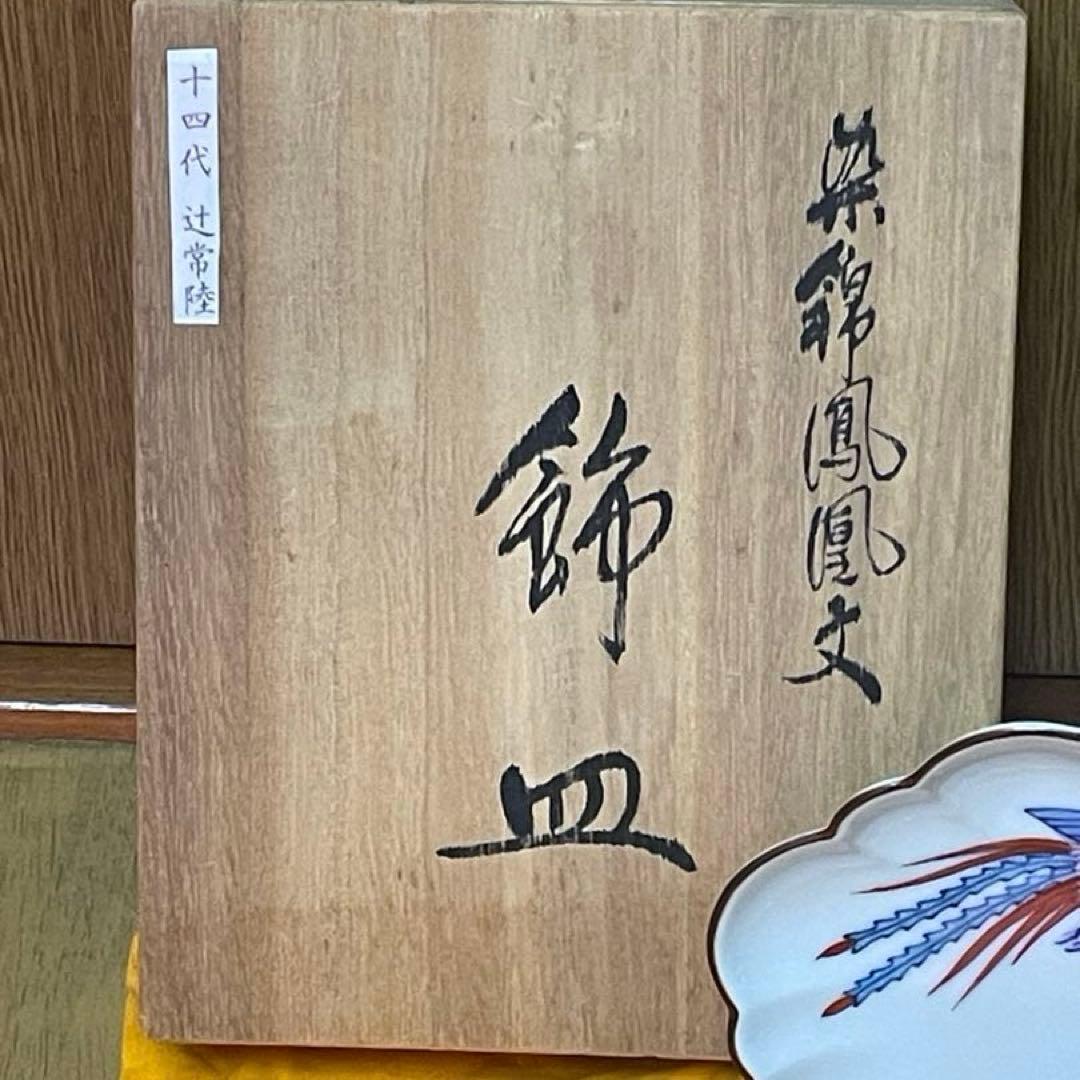 染錦鳳凰文
飾皿
十四代 辻常陸